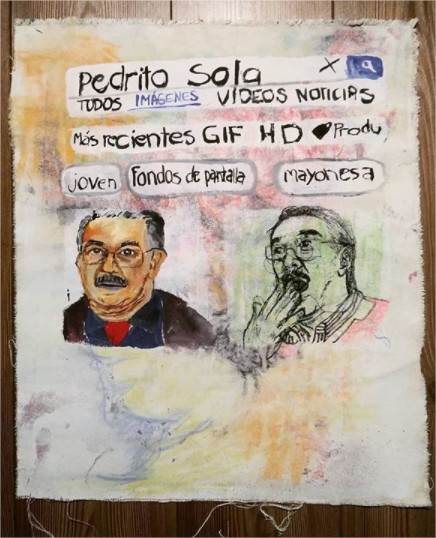 Pedrito Sola X
TUDOS IMÁGENES VÍDEOS NOTICIAS
Más recientes GIF HD Produ
joven Fondos de pantalla mayonesa